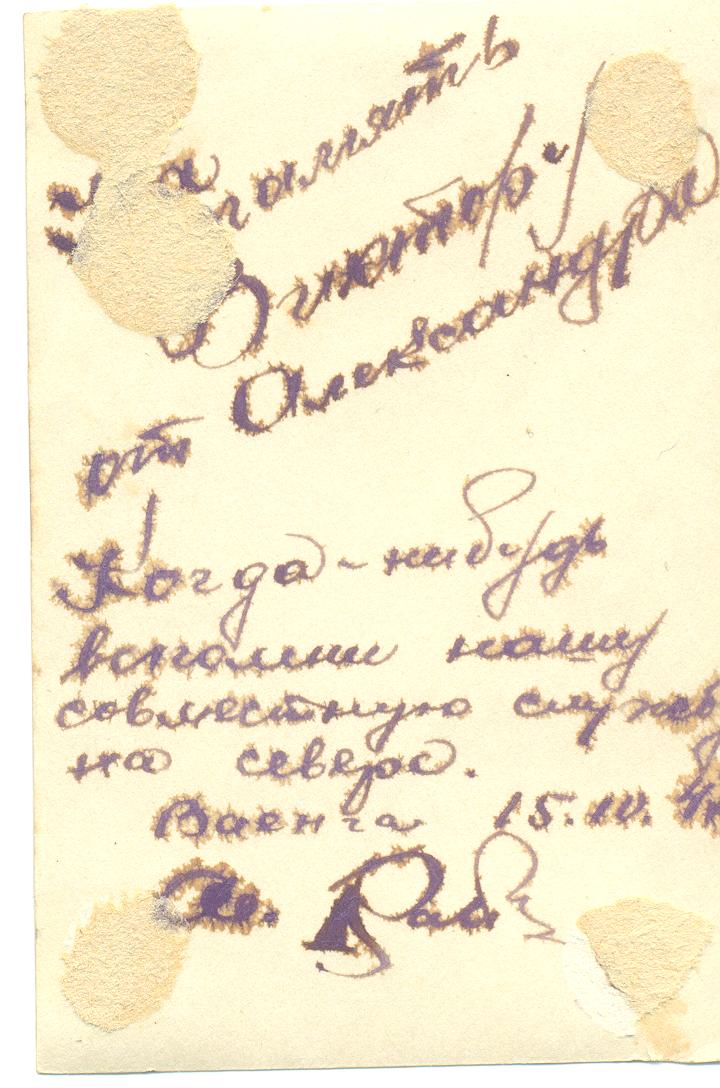 На память
Виктору
от Александра
Когда-нибудь
вспомни нашу
совместную службу
на севере.
Ваенга 15.IV.